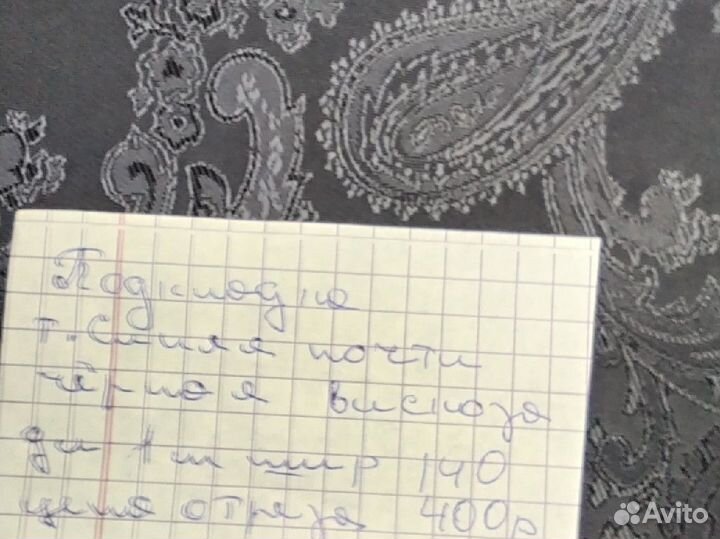 Подкладка
т. синяя почти
чёрная вискоза
дл 1 м шир 140
цена отреза 400р
Avito